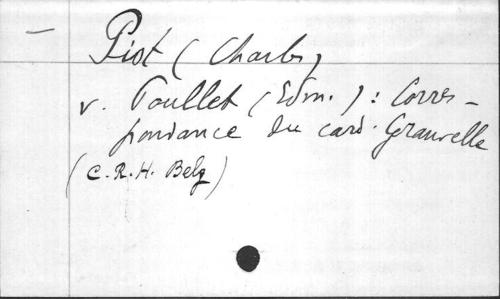 Piot (Charles)
v. Poullet (Edm.) : Corres-
pondance du card. Granvelle
(C.R.H. Belg)